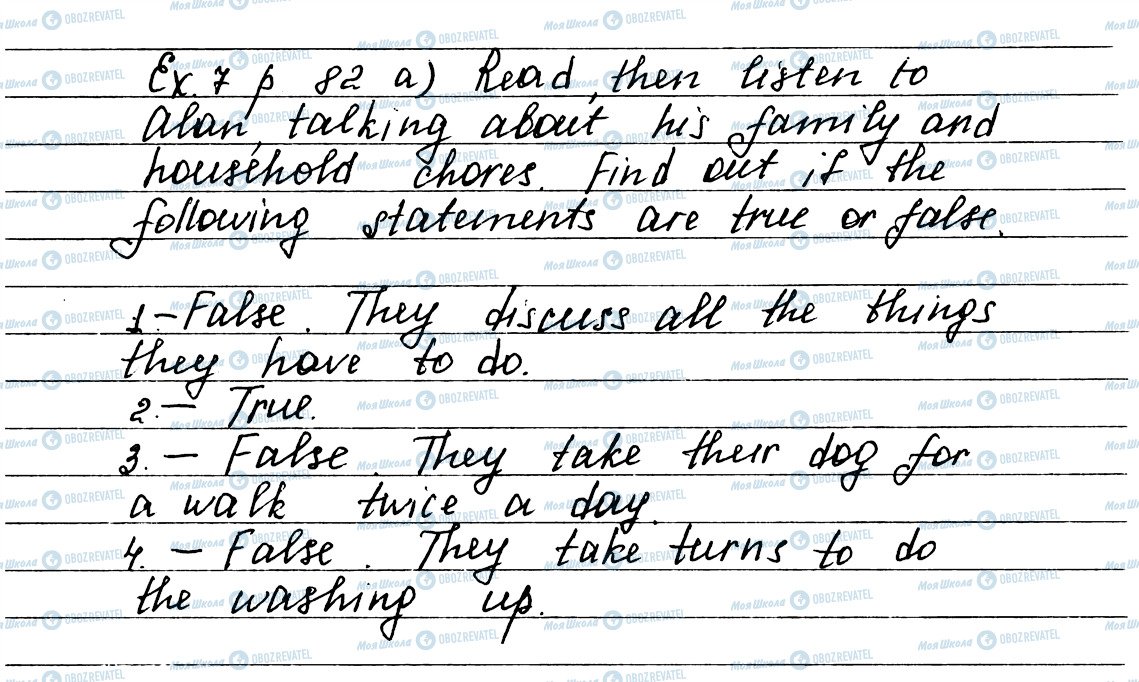 Ex. 7 p 82 a) Read, then listen to
Alan talking about his family and
household chores. Find out if the
following statements are true or false.
1 – False. They discuss all the things
they have to do.
2. – True.
3. – False. They take their dog for
a walk twice a day.
4. – False. They take turns to do
the washing up.